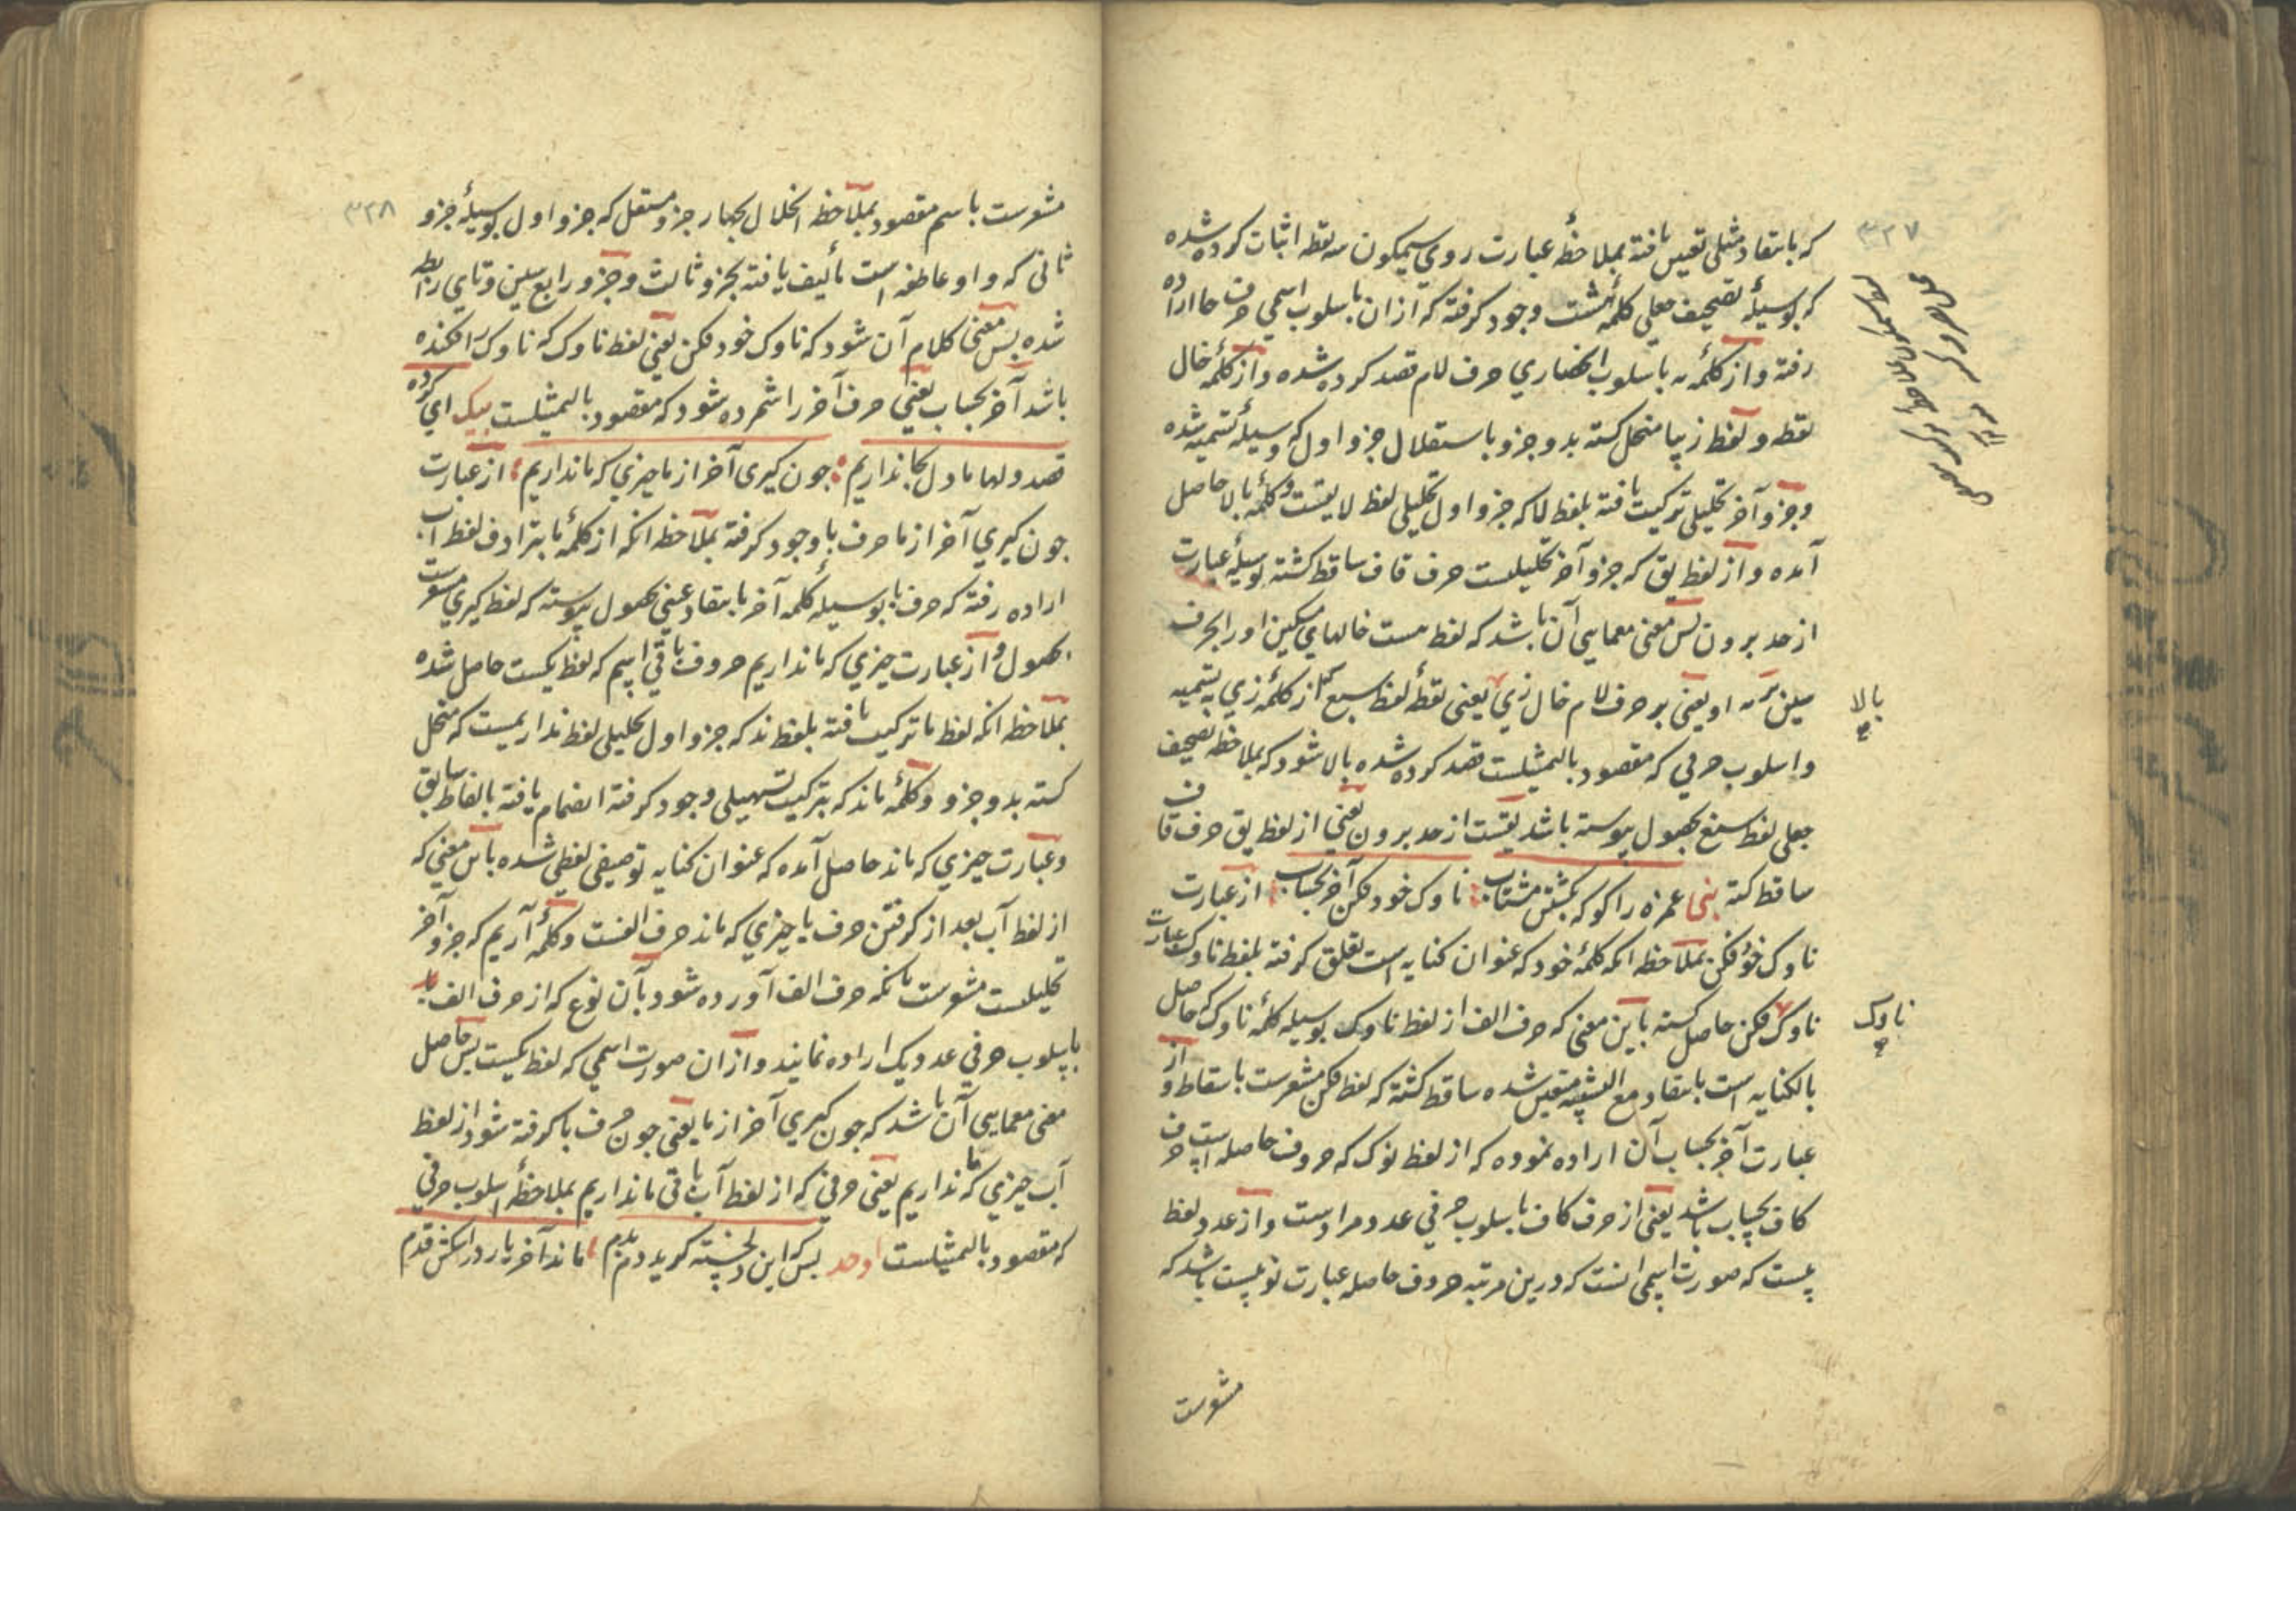 ۳۲۷
که بانتقاد مثلی تعین یافته بملاحظهٔ عبارت روی سیمکون سه نقطه اثبات کرده شده
که بوسیلهٔ تصحیف جعلی کلمهٔ مشت وجود کرفته که ازان باسلوب اسمی حرف حا اراده
رفته و از کلمهٔ مه باسلوب انحصاری حرف لام قصد کرده شده و از کلمهٔ خال
نقطه و لفظ زیبا منحل کسته بدو جزو باستقلال جزو اول که وسیلهٔ تسمیه شده
و جزو آخر تحلیلی ترکیب یافته بلفظ لا که جزو اول تحلیلی لفظ لایقست و کلمهٔ بالا حاصل
آمده و از لفظ یق که جزو آخر تحلیلست حرف قاف ساقط کشته بوسیلهٔ عبارت
از حد برون پس معنی معمایی آن باشد که لفظ هست خالهای مسکین او را بحرف
میلفن بر مه او یعنی بر حرف لام خال زی یعنی نقطهٔ لفظ سبع که از کلمهٔ زی به تسمیه
و اسلوب حرفی که مقصود بالتمثیلست قصد کرده شده بالا شود که بملاحظه تصحیف
جعلی لفظ سبع بحصول پیوسته باشد یقست از حد برون یعنی از لفظ یق حرف قاف
ساقط کشته نبی غمزه را کو که بکشتن مشتاب : ناوک خود فکن آخر بحساب : از عبارت
ناوک خود فکن بملاحظه انکه کلمهٔ خود که عنوان کنایه است تعلق کرفته بلفظ ناوک عبارت
ناوک فکن حاصل کسته باین معنی که حرف الف از لفظ ناوک بوسیله کلمهٔ ناوک که حاصل
بالکنایه است بانتقاد مع التشبیه متعین شده ساقط کشته که لفظ فکن مشعرست باسقاط و از
عبارت آخر بحساب آن اراده نموده که از لفظ نوک که حروف حاصله است حرف
کاف بحساب باشد یعنی از حرف کاف باسلوب حرفی عدد مرادست و از عدد لفظ
بیست که صورت اسمی انست که درین مرتبه حروف حاصله عبارت نو بیست باشد که
بالا
ناوک
مشعرست
۳۲۸
مشعرست باسم مقصود بملاحظه انحلال بچهار جزو مستقل که جزو اول بوسیلهٔ جزو
ثانی که واو عاطفه است تألیف یافته بجزو ثالث و جزو رابع سین و تای رابطه
شده پس معنی کلام آن شود که ناوک خود فکن یعنی لفظ ناوک که ناوک را فکنده
باشد آخر بحساب یعنی حرف آخر را شمرده شود که مقصود بالتمثیلست بیک ای کرده
قصد دلها ما دل کجا نداریم : چون کیری آخر از ما چیزی که ما نداریم : از عبارت
چون کیری آخر از ما حرف با وجود کرفته بملاحظه انکه از کلمهٔ ما بترادف لفظ آب
اراده رفته که حرف با بوسیله کلمه آخر بانتقاد عینی بحصول پیوسته که لفظ کیری مشعرست
بحصول و از عبارت چیزی که ما نداریم حروف باقی اسم که لفظ یکست حاصل شده
بملاحظه انکه لفظ ما ترکیب یافته بلفظ ند که جزو اول تحلیلی لفظ نداریمست که منحل
کسته بدو جزو و کلمهٔ ماند که بترکیب تسهیلی وجود کرفته انضمام یافته بالفاظ سابق
و عبارت چیزی که ماند حاصل آمده که عنوان کنایه توصیفی لفظی شده باین معنی که
از لفظ آب بعد از کرفتن حرف با چیزی که ماند حرف الفست و کلمهٔ آریم که جزو آخر
تحلیلست مشعرست بانکه حرف الف آورده شود بآن نوع که از حرف الف
باسلوب حرفی عدد یک اراده نمایند و ازان صورت اسمی که لفظ یکست پس حاصل
معنی معمایی آن باشد که چون کیری آخر از ما یعنی چون حرف با کرفته شود از لفظ
آب چیزی که ما نداریم یعنی حرفی که از لفظ آب باقی ماند اریم بملاحظهٔ اسلوب حرفی
که مقصود بالتمثیلست اوحد بس که این دلخسته کرید دم بدم : ماند آخر یار در اشکش قدم